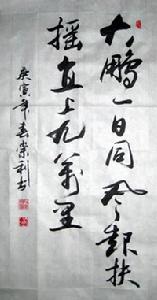 大鹏一日同风起扶
摇直上九萬里
庚寅年春崇利书